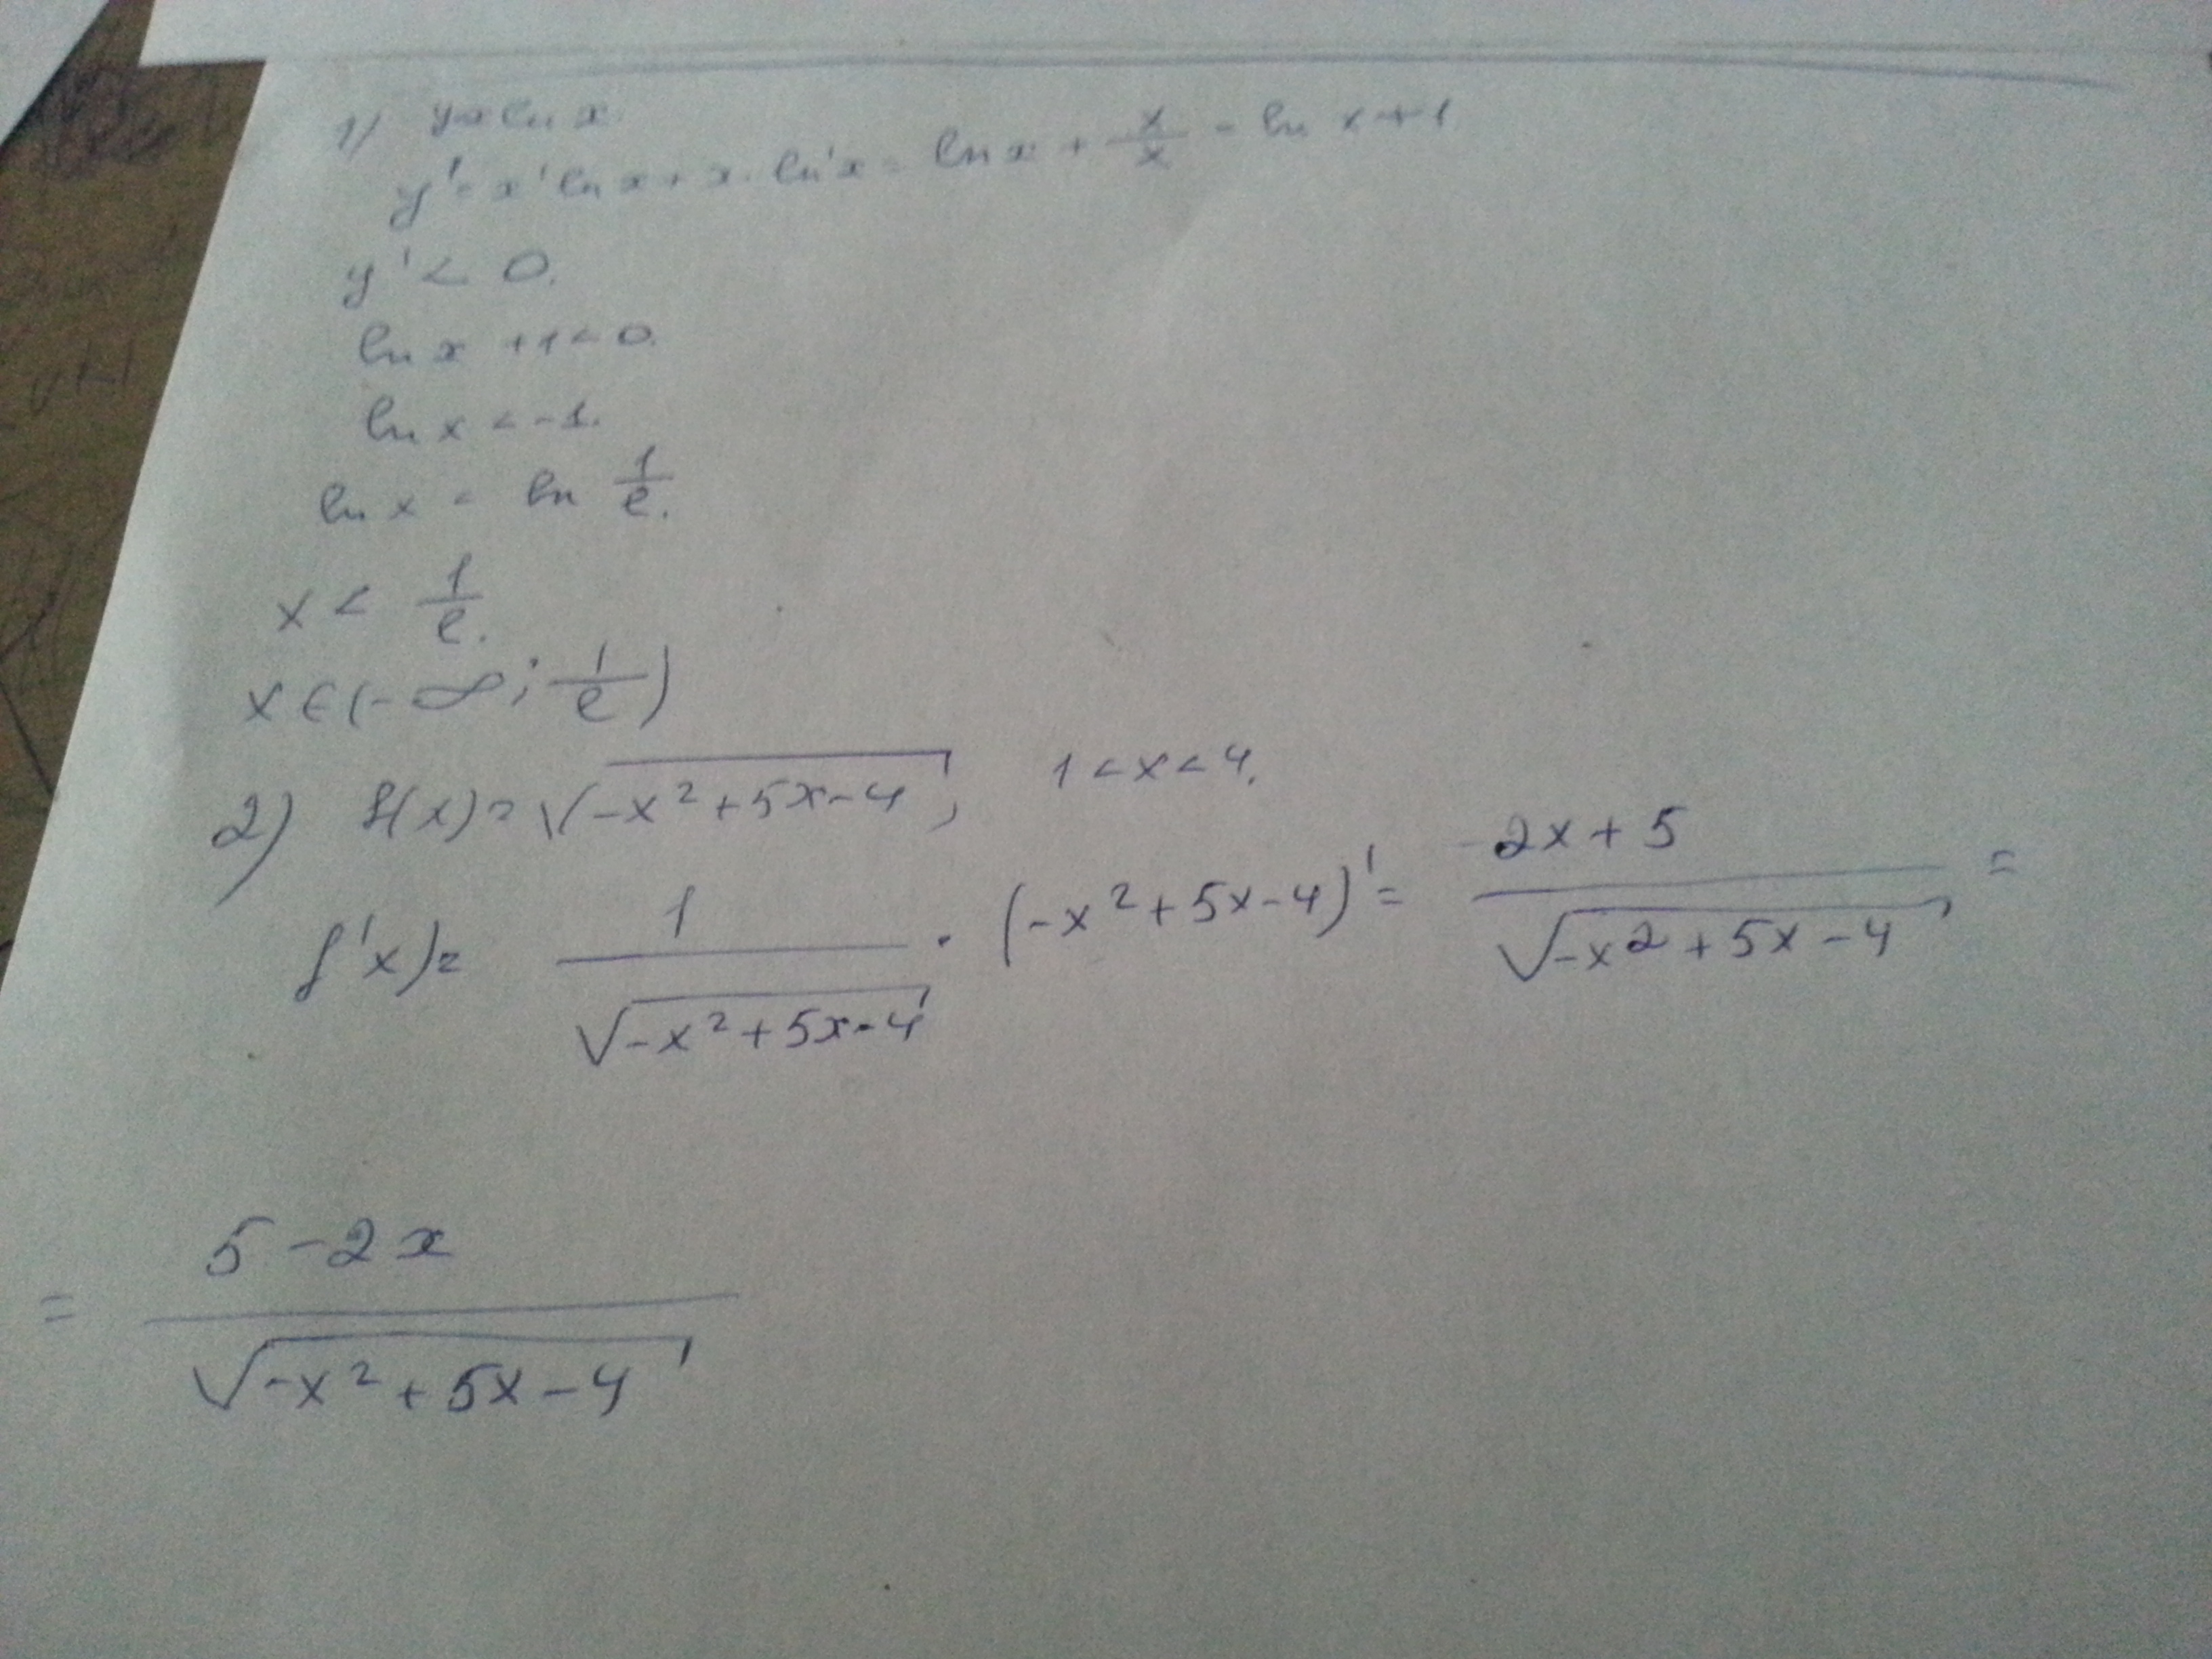 1) y=x ln x.
y' = x' ln x + x · ln' x = ln x + x/x = ln x + 1
y' < 0.
ln x + 1 < 0.
ln x < -1.
ln x < ln 1/e.
x < 1/e.
x ∈ (-∞; 1/e)
2) f(x) = √(-x² + 5x - 4), 1 < x < 4.
f'x) = 1/√(-x² + 5x - 4) · (-x² + 5x - 4)' = -2x + 5/√(-x² + 5x - 4) =
= 5 - 2x/√(-x² + 5x - 4)